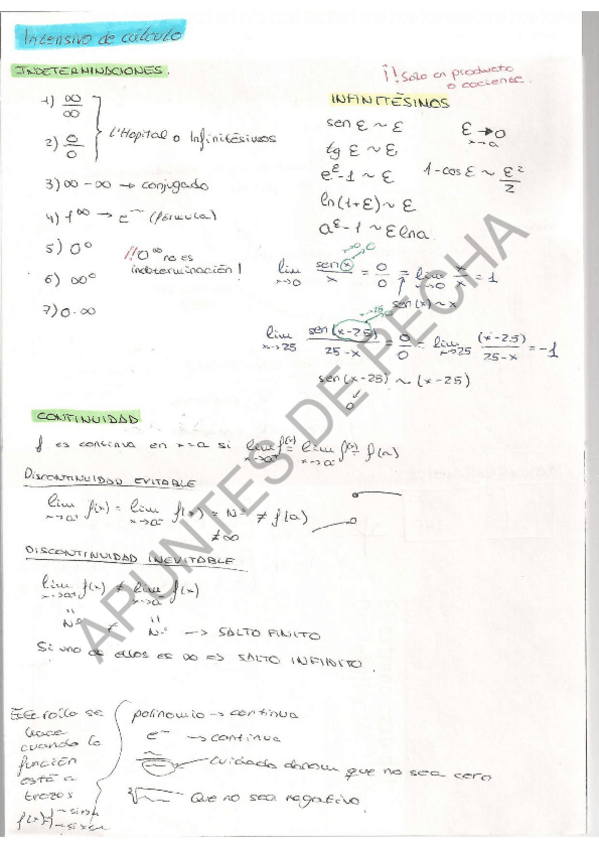 Intensivo de cálculo
INDETERMINACIONES.
¡¡ Solo en producto
o cociente.
1) ∞/∞
2) 0/0
L'Hopital o Infinitésimos
3) ∞ - ∞ → conjugado
4) 1^∞ → e^~ (fórmula)
5) 0⁰
6) ∞⁰
7) 0·∞
!! 0^∞ no es
indeterminación!
INFINITÉSIMOS
sen ε ~ ε
tg ε ~ ε
e^ε - 1 ~ ε
ln(1+ε) ~ ε
a^ε - 1 ~ ε ln a
ε → 0
x→a
1 - cos ε ~ ε²/2
lim x→0 sen(x)/x = 0/0 = lim x→0 x/x = 1
sen(x) ~ x
lim x→25 sen(x-25)/(25-x) = 0/0 = lim x→25 (x-25)/(25-x) = -1
sen(x-25) ~ (x-25)
0
CONTINUIDAD
f es continua en x=a si lim x→a⁺ f(x) = lim x→a⁻ f(x) = f(a)
DISCONTINUIDAD EVITABLE
lim x→a⁺ f(x) = lim x→a⁻ f(x) = Nº ≠ f(a)
≠∞
DISCONTINUIDAD INEVITABLE
lim x→a⁺ f(x) ≠ lim x→a⁻ f(x)
Nº ≠ Nº → SALTO FINITO
Si uno de ellos es ∞ => SALTO INFINITO.
Este rollo se
hace
cuando la
función
está a
trozos
polinomio → continua
e^~ → continua
Cuidado denom que no sea cero
Que no sea negativo.
APUNTES DE PECHA